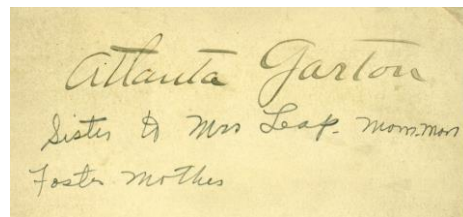 Atlanta Garton
Sister to Mrs Leap. Mom-Mom
Foster Mother